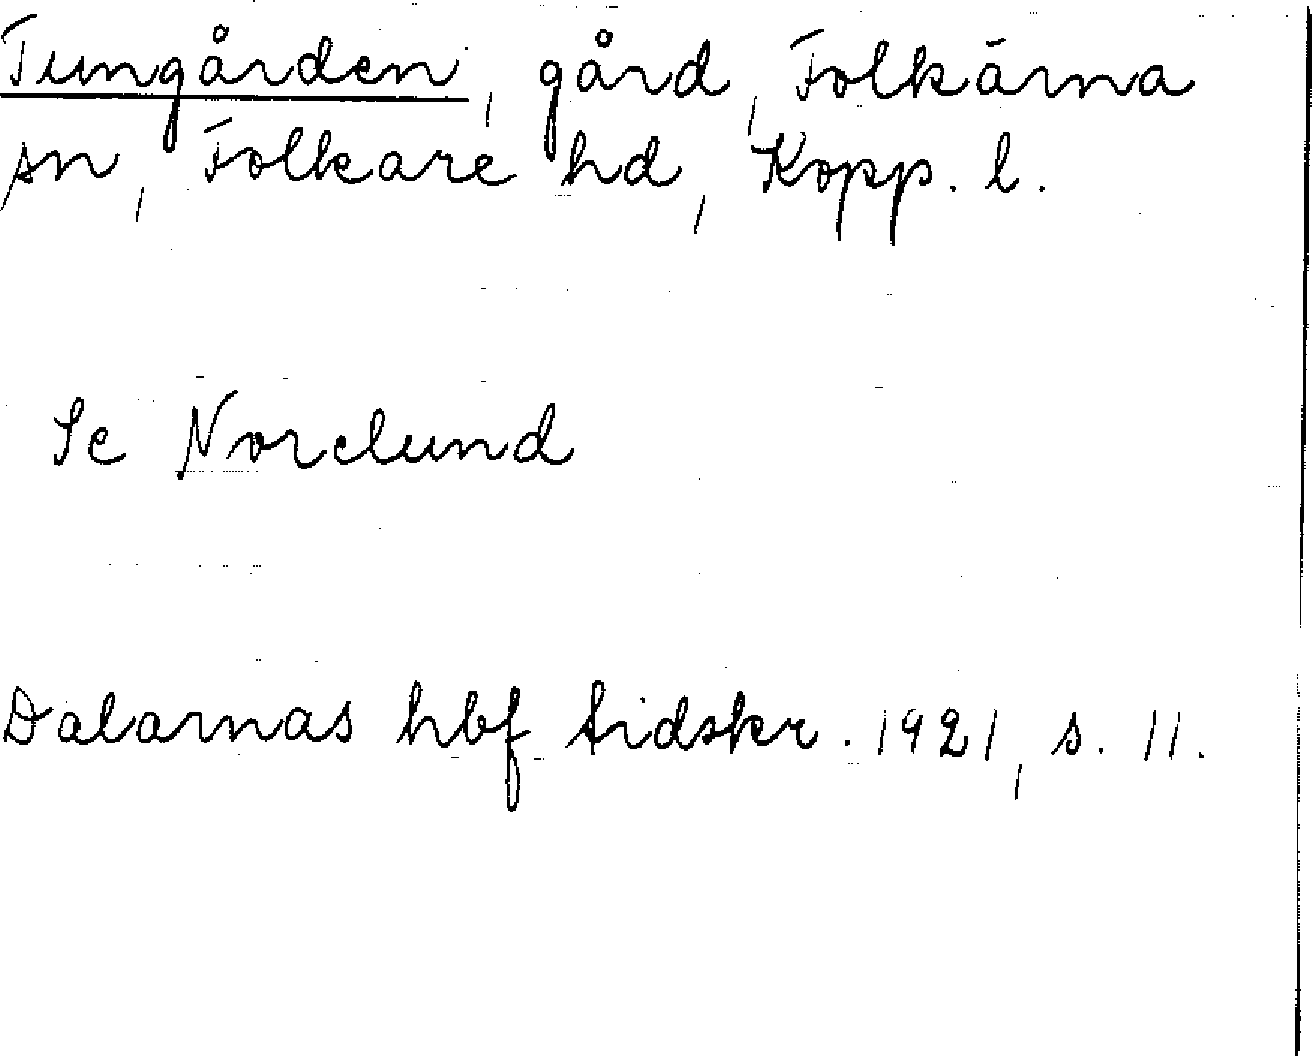 Tungården, gård, Folkärna
sn, Folkare hd, Kopp. l.
Se Norelund
Dalarnas hbf tidskr. 1921, s. 11.